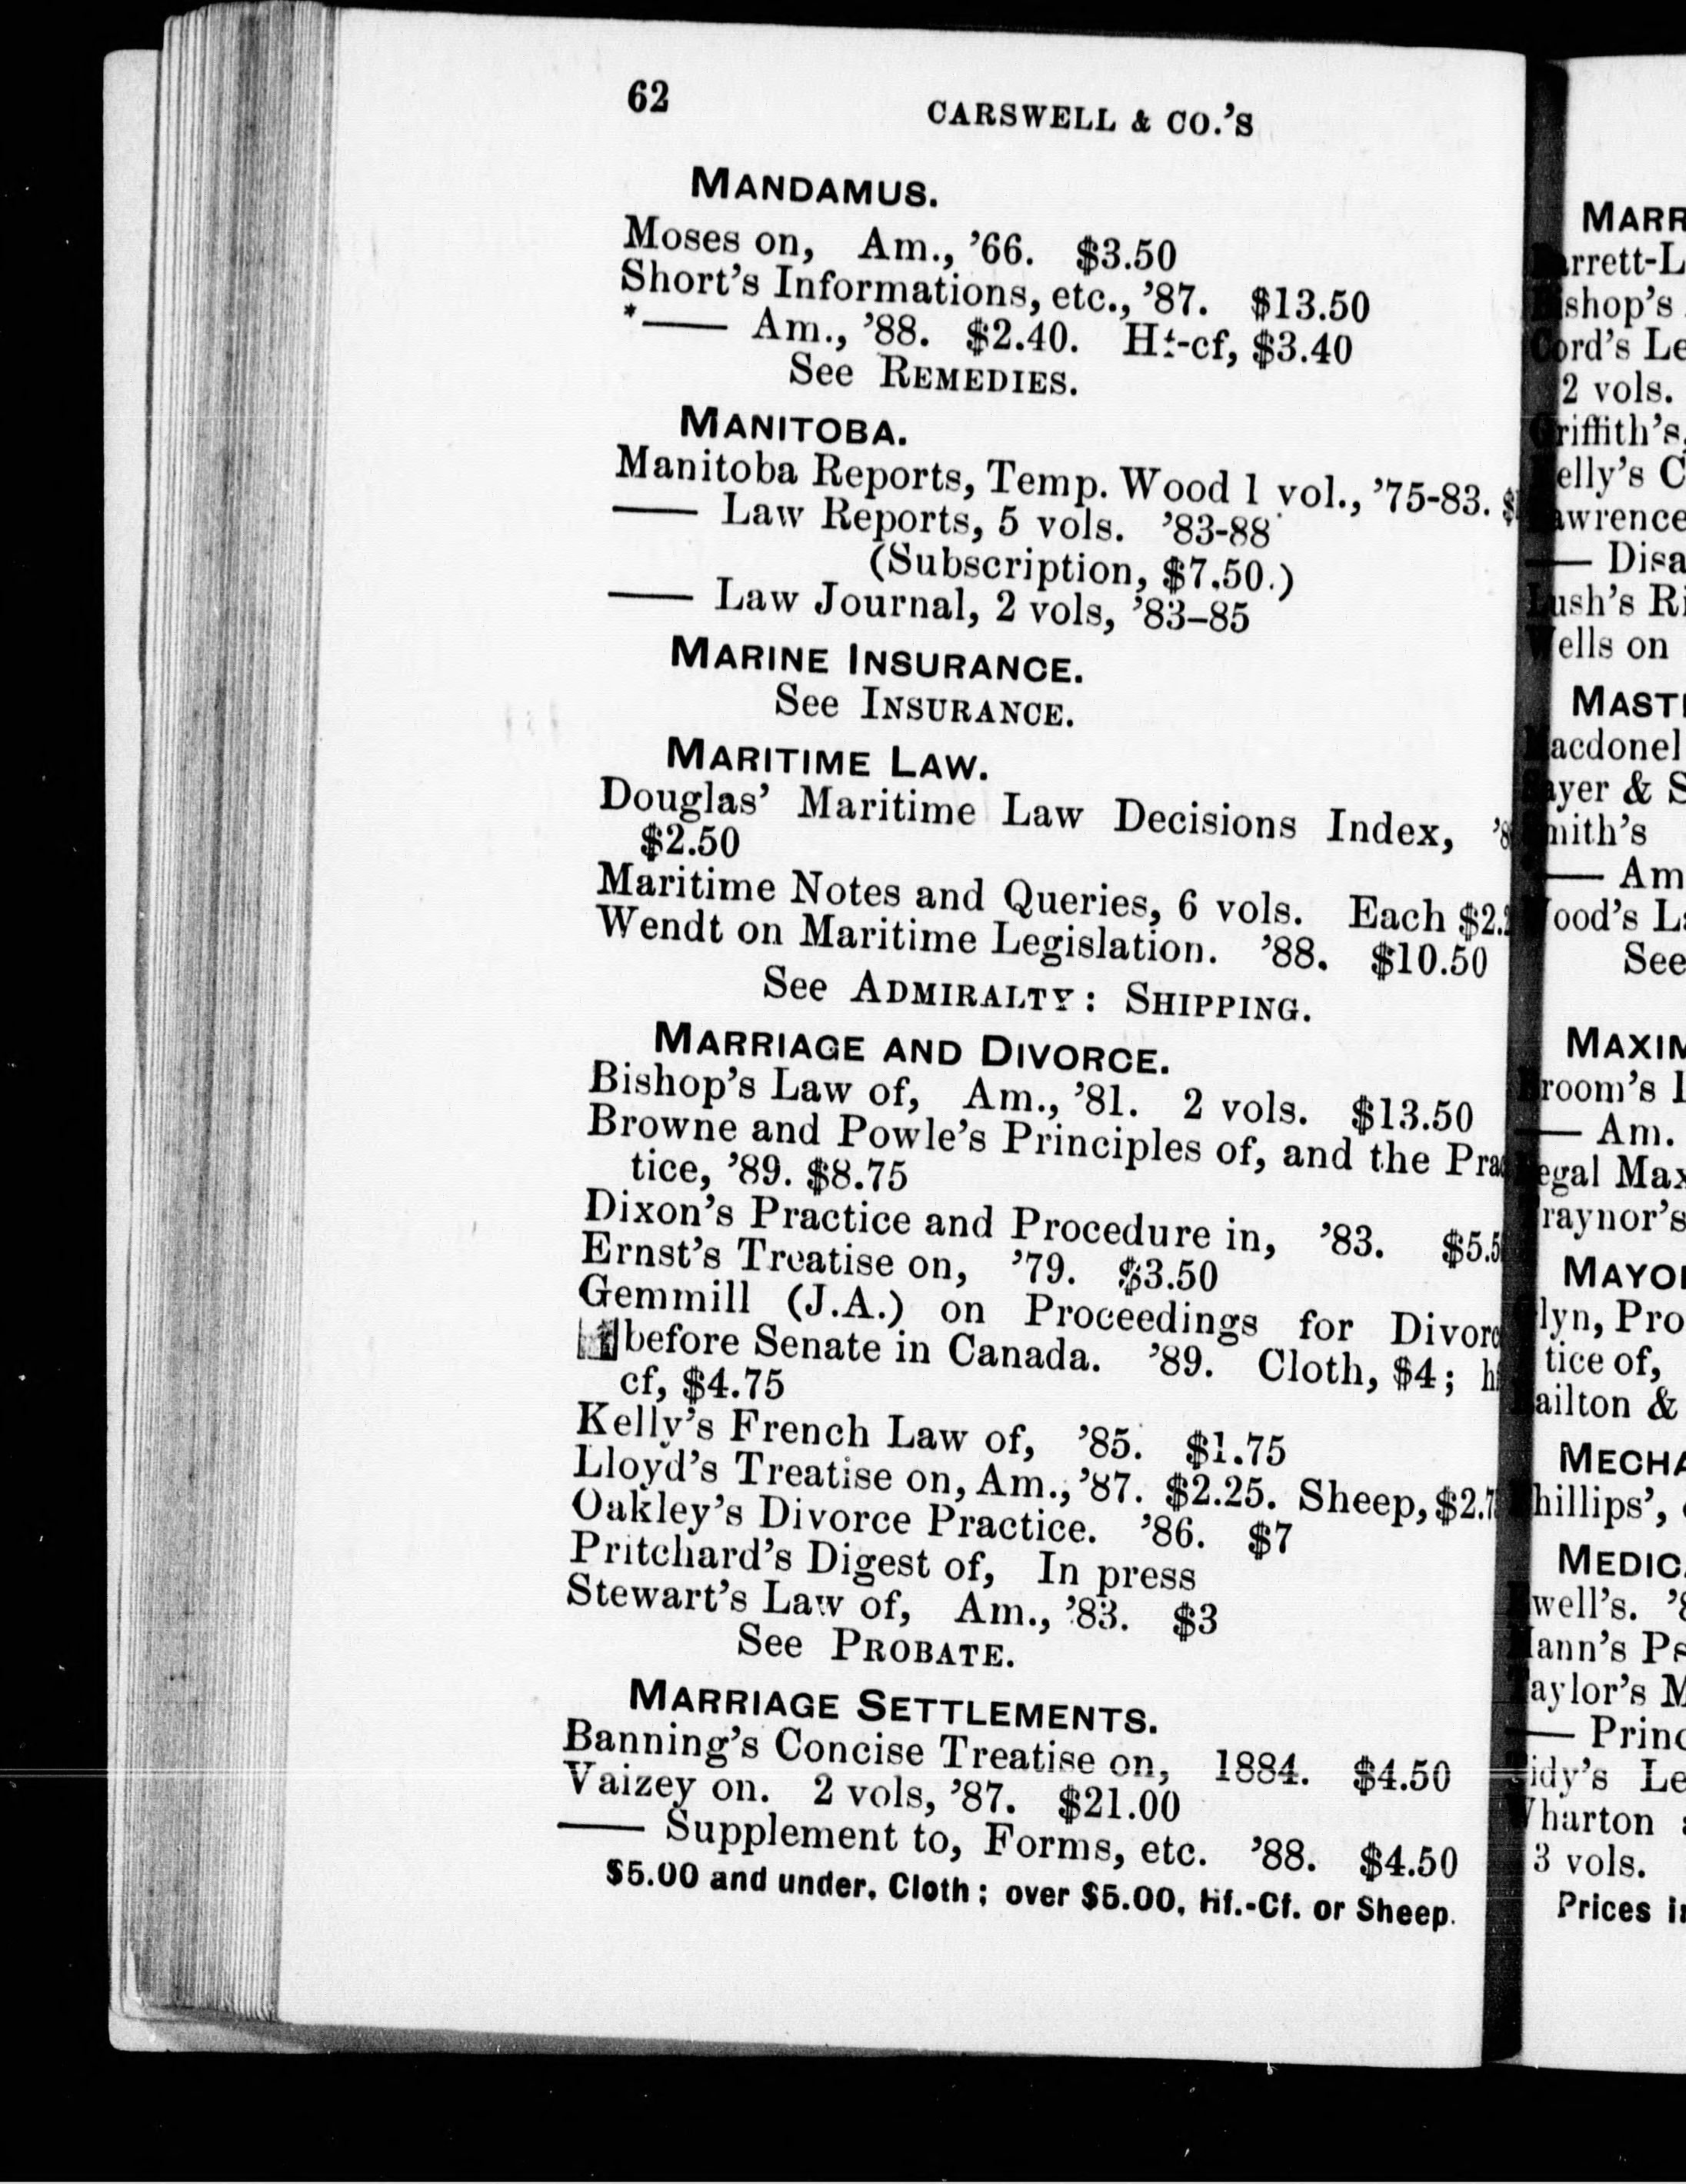 62
CARSWELL & CO.'S
MANDAMUS.
Moses on, Am., '66. $3.50
Short's Informations, etc., '87. $13.50
*—— Am., '88. $2.40. Hf-cf, $3.40
See REMEDIES.
MANITOBA.
Manitoba Reports, Temp. Wood 1 vol., '75-83.
—— Law Reports, 5 vols. '83-88
(Subscription, $7.50.)
—— Law Journal, 2 vols, '83-85
MARINE INSURANCE.
See INSURANCE.
MARITIME LAW.
Douglas' Maritime Law Decisions Index,
$2.50
Maritime Notes and Queries, 6 vols. Each
Wendt on Maritime Legislation. '88. $10.50
See ADMIRALTY: SHIPPING.
MARRIAGE AND DIVORCE.
Bishop's Law of, Am., '81. 2 vols. $13.50
Browne and Powle's Principles of, and the Prac
tice, '89. $8.75
Dixon's Practice and Procedure in, '83. $5.5
Ernst's Treatise on, '79. $3.50
Gemmill (J.A.) on Proceedings for Divorc
before Senate in Canada. '89. Cloth, $4; h
cf, $4.75
Kelly's French Law of, '85. $1.75
Lloyd's Treatise on, Am., '87. $2.25. Sheep, $2.7
Oakley's Divorce Practice. '86. $7
Pritchard's Digest of, In press
Stewart's Law of, Am., '83. $3
See PROBATE.
MARRIAGE SETTLEMENTS.
Banning's Concise Treatise on, 1884. $4.50
Vaizey on. 2 vols, '87. $21.00
—— Supplement to, Forms, etc. '88. $4.50
$5.00 and under, Cloth; over $5.00, Hf.-Cf. or Sheep.
MARR
rrett-L
shop's
ord's Le
2 vols.
riffith's,
elly's C
wrence
—— Disa
ush's Ri
ells on
MAST
acdonel
ayer & S
mith's
—— Am
ood's La
See
MAXIM
room's
—— Am.
egal Max
raynor's
MAYO
lyn, Pro
tice of,
ailton &
MECHA
hillips',
MEDIC
well's.
ann's Ps
aylor's M
—— Princ
idy's Le
harton
3 vols.
Prices in